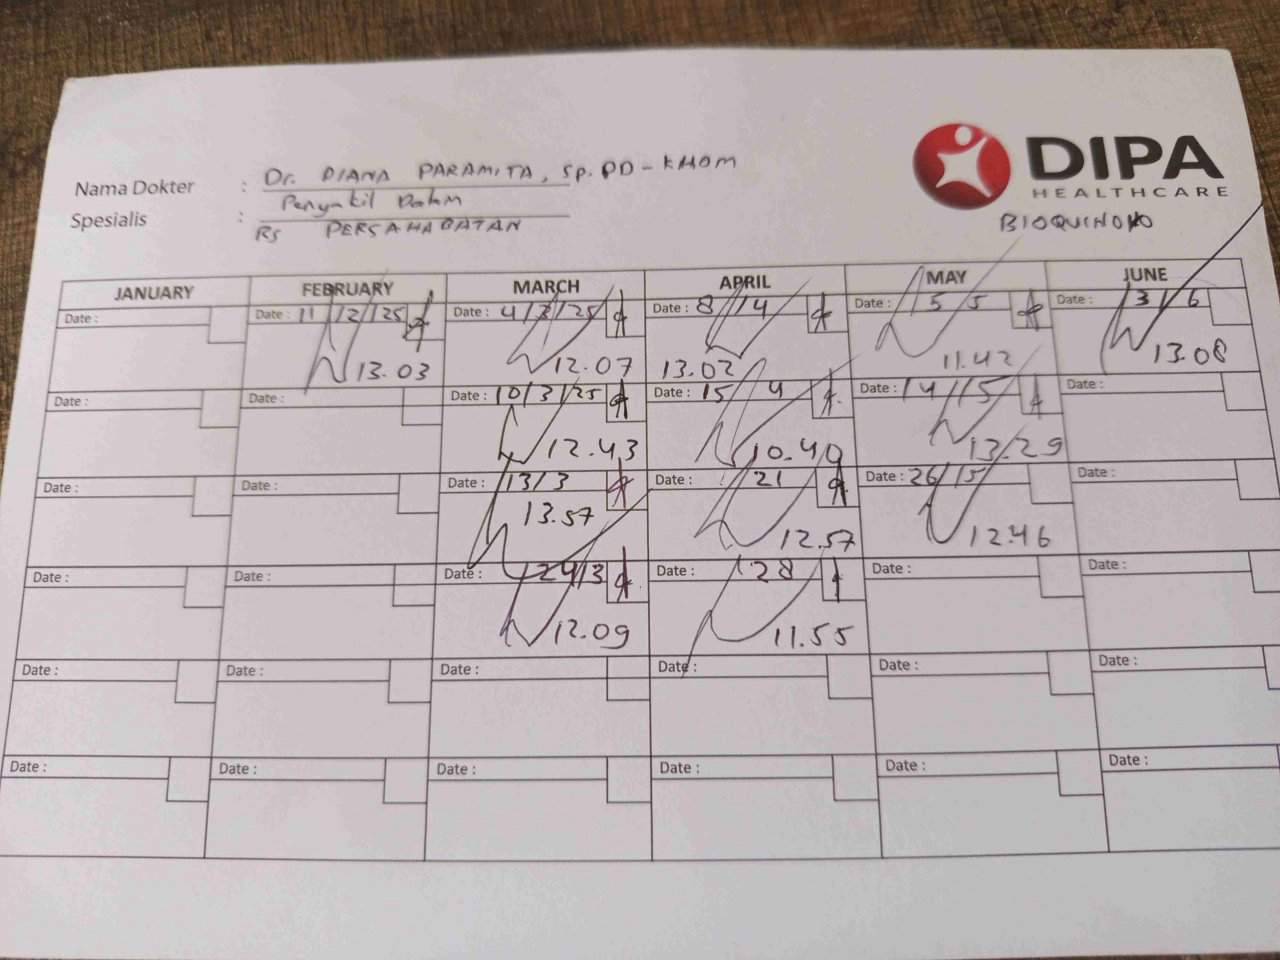 Nama Dokter : Dr. DIANA PARAMITA, Sp.PD-KHOM
Spesialis : Penyakit Dalam
RS PERSAHABATAN
DIPA
HEALTHCARE
JANUARY FEBRUARY MARCH APRIL MAY JUNE
Date : Date : 11/2/25 Date : 4/3/25 Date : 8/4 Date : 5/5 Date : 3/6
13.03 12.07 13.02 11.42 13.08
Date : Date : Date : 10/3/25 Date : 15 4 Date : 14/5 Date :
12.43 10.40 13.29
Date : Date : Date : 13/3 Date : 21 Date : 26/5 Date :
13.57 12.57 12.46
Date : Date : Date : 24/3 Date : 28 Date : Date :
12.09 11.55
Date : Date : Date : Date : Date : Date :
Date : Date : Date : Date : Date : Date :